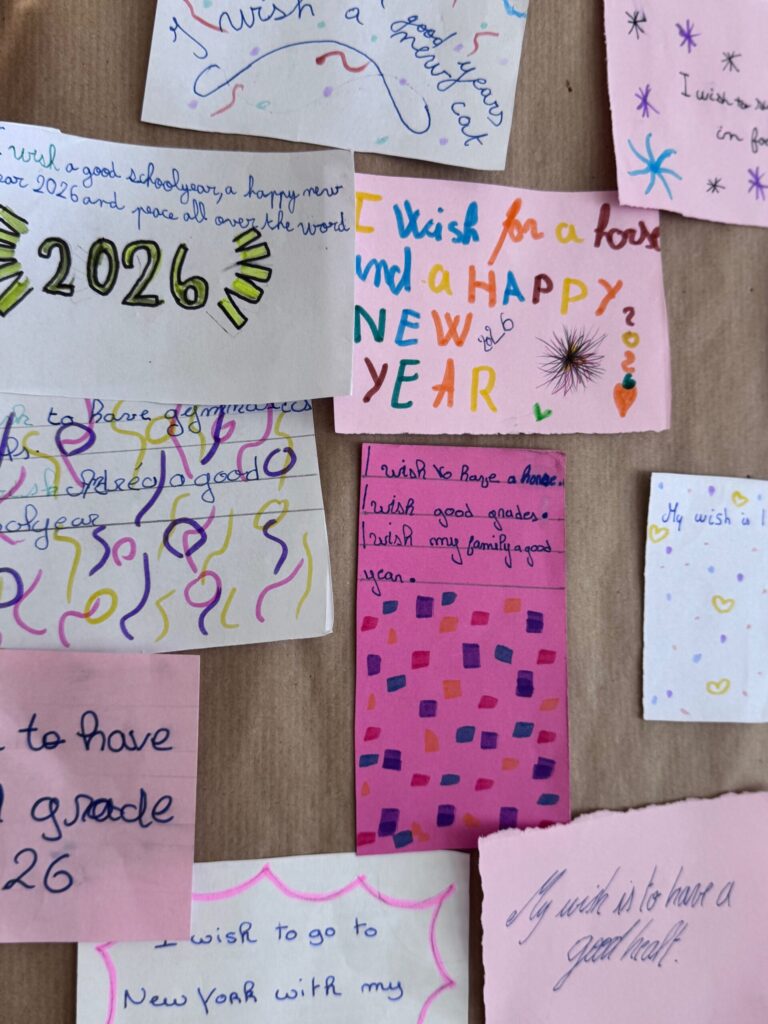 I wish a good years
a new cat
I wish to
in
I wish a good schoolyear, a happy new
ear 2026 and peace all over the word
2026
I wish for a horse
and a HAPPY
NEW 2026
YEAR
2026
to have gymnastics
a good
olyear
I wish to have a horse.
I wish good grades.
I wish my family a good
year.
My wish is
to have
grade
26
I wish to go to
New York with my
My wish is to have a
good healt.